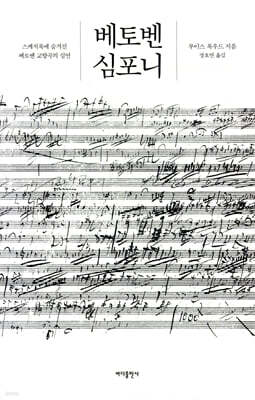 스케치북에 숨겨진
베토벤 교향곡의 섬연
베토벤
심포니
루이스 록우드 지음
장호연 옮김
바다출판사